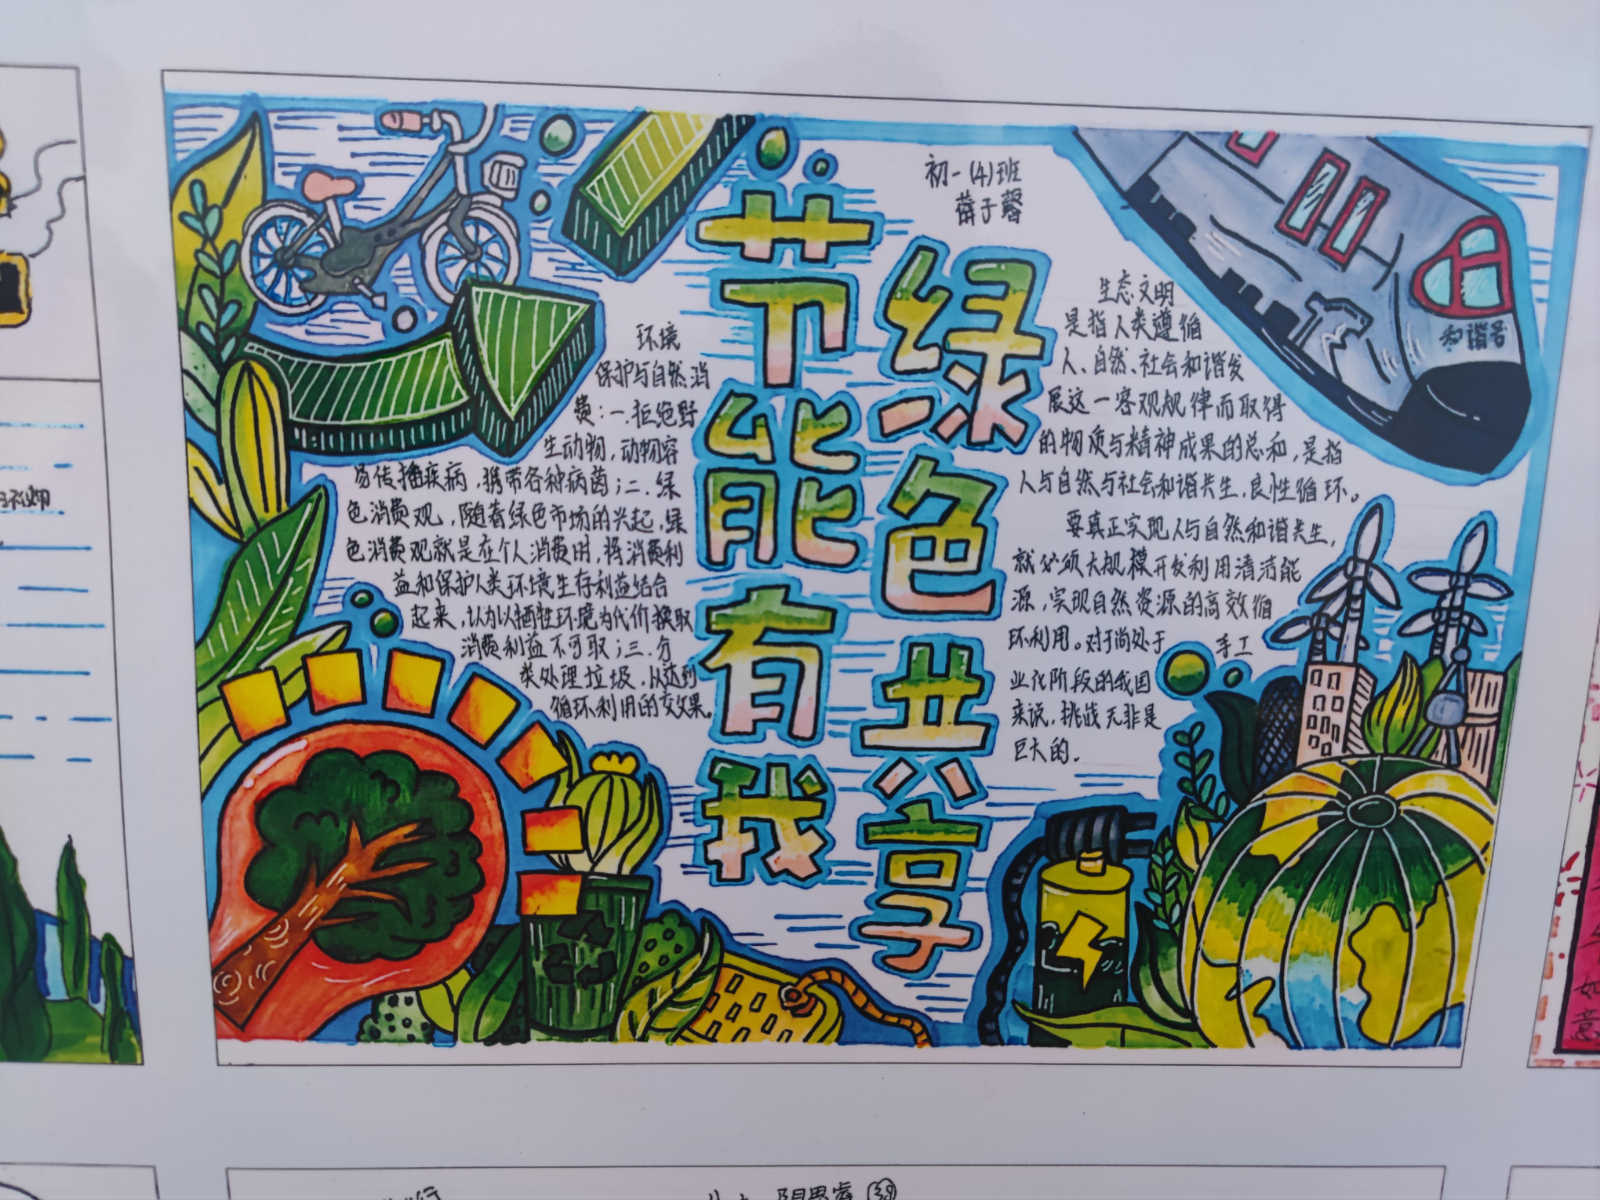 节能有我
绿色共享
初一(4)班
环境
保护与自然消
费：一.拒绝野
生动物，动物容
易传播疾病，携带各种病菌；二.绿
色消费观，随着绿色市场的兴起，绿
色消费观就是在个人消费用，将消费利
益和保护人类环境生存利益结合
起来，认为以牺牲环境为代价换取
消费利益不可取；三.分
类处理垃圾，从达到
循环利用的交效果。
生态文明
是指人类遵循
人、自然、社会和谐发
展这一客观规律而取得
的物质与精神成果的总和，是指
人与自然与社会和谐共生，良性循环。
要真正实现人与自然和谐共生，
就必须大规模开发利用清洁能
源，实现自然资源的高效循
环利用。对于尚处于 手工
业化阶段的我国
来说，挑战无非是
巨大的.
和谐号
如
意